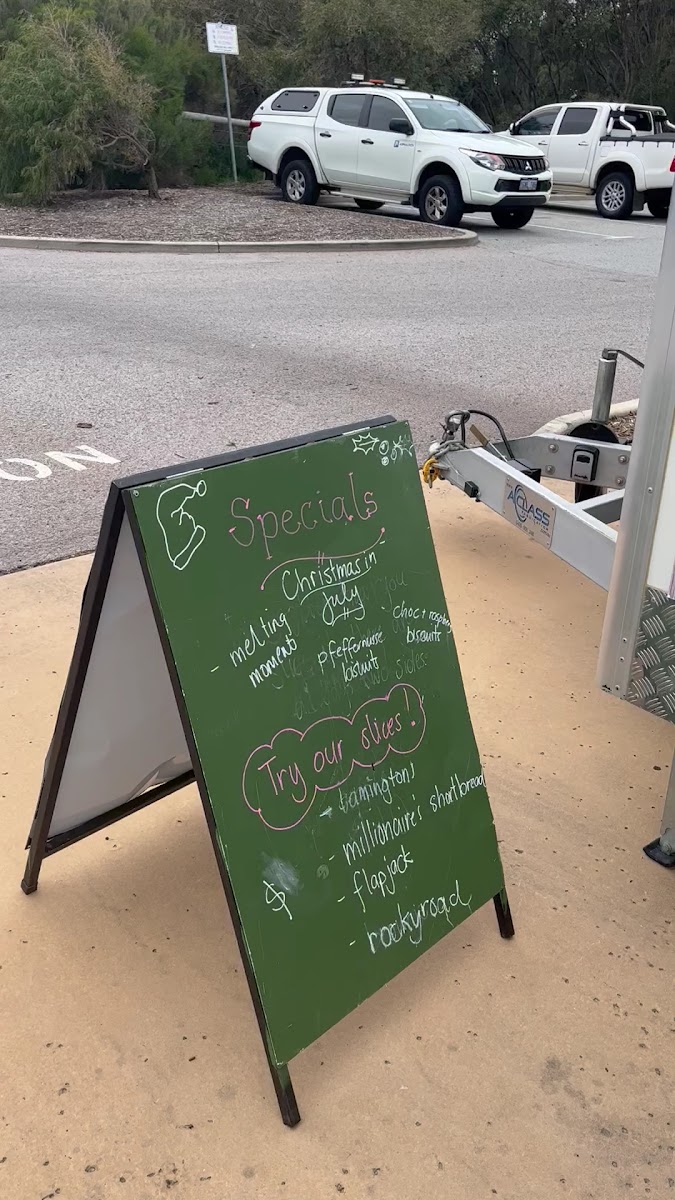 Specials
Christmas in
July
- melting
moment
pfeffernusse
biscuits
choc + raspberry
biscuits
you
two sides.
Try our slices!
- Lamingtons
- millionaire's shortbread
- flapjack
$
- rockyroad
A CLASS
ON